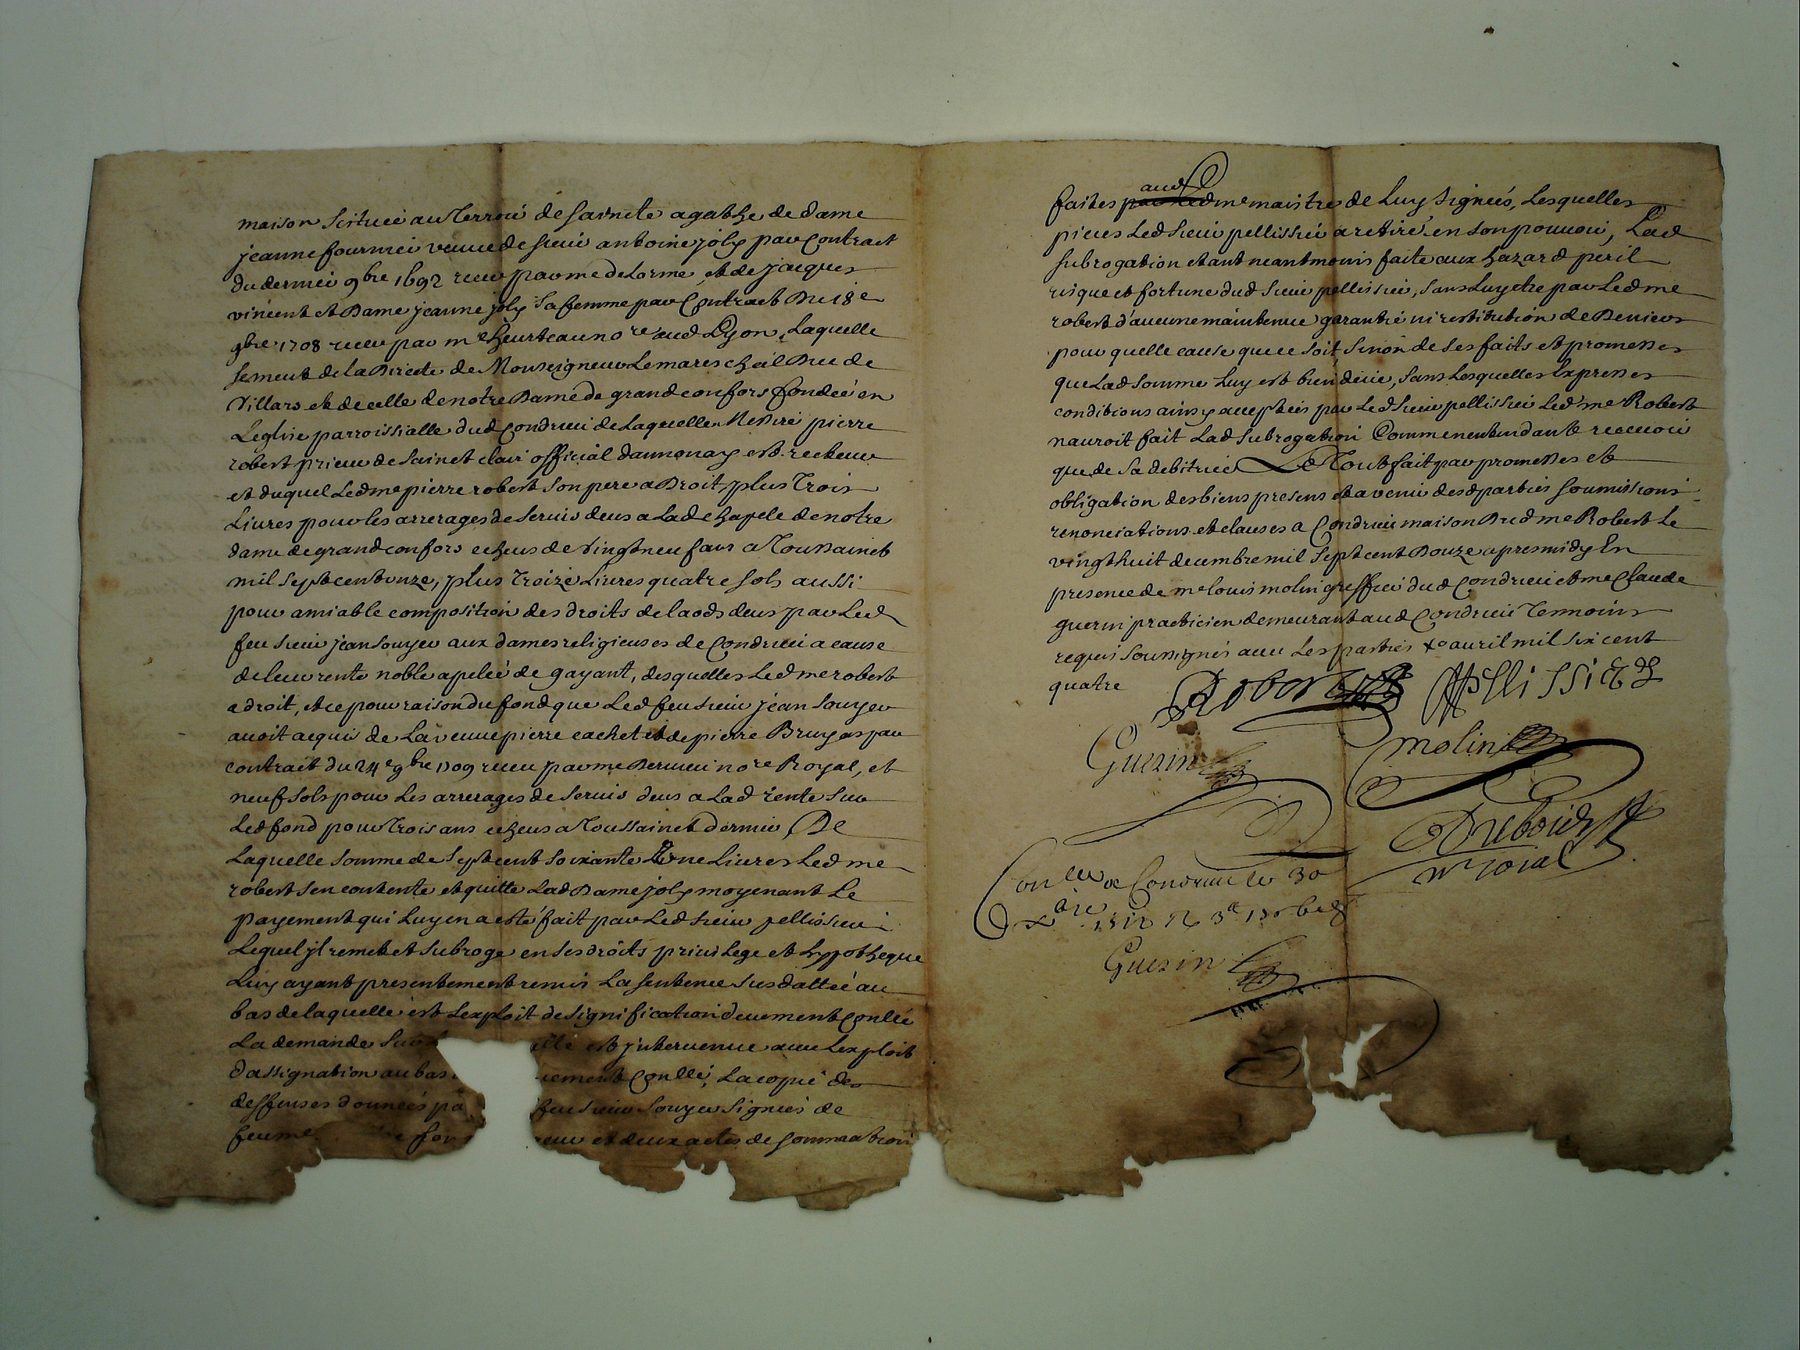 maison scituée au Terroir de saincte agathe de dame
jeanne fournier veuve de sieur antoine joly par Contract
du dernier 9bre 1692 receu par me delorme, et de jacques
vincent et Dame jeanne joly sa femme par Contract Du 18e
9bre 1708 receu par me heurteau nore aud Lyon, Laquelle
se meut de la Directe de Monseigneur Le mareschal Duc de
Villars et de celle de notre Dame de grand confors fondée en
Leglise parroissialle dud Condrieu de Laquelle Messire pierre
robert prieur de sainct clair official dannonay est recteur
et duquel Led me pierre robert son pere a Droit, plus Trois
Livres pour les arrerages de servis deus a Lad chapele de notre
dame de grand confors echeus de vingt neuf ans a Toussainct
mil sept cent onze, plus Treize Livres quatre sols aussi
pour amiable composition des droits de laods deus par Led
feu sieur jean souyer aux dames religieuses de Condrieu a cause
de leur rente noble apelée de gayant, desquelles Led me robert
a droit, et ce pour raison du fond que Led feu sieur jean souyer
avoit acquis de La veuve pierre cachet et de pierre Bruyas par
contract du 24e 9bre 1709 receu par me Dervieu nore Royal, et
neuf sols pour Les arrerages de servis deus a Lad rente sur
Led fond pour Trois ans echeus a Toussainct dernier De
Laquelle somme de sept cent soixante Une Livres Led me
robert sen contente et quitte Lad Dame joly moyenant Le
payement qui Luy en a esté fait par Led sieur pellissier
Lequel jl remet et subroge en ses droits privilege et hypotheque
Luy ayant presentement remis La sentence sus dattée au
bas de laquelle est Lexploit de signification deuement Conllé
La demande est jntervenue avec Lexploit
dassignation au bas Conllé, La copie des
deffenses données feu sieur souyer signées de
feu me et deux actes de sommation
faites aud me maistre de Luy signées, Lesquelles
pieces Led sieur pellissier a retiré en son pouvoir, Lad
subrogation etant neantmoins faite aux hazard peril
risque et fortune dud sieur pellissier, sans Luy etre par Led me
robert d'aucune maintenue garantie ni restitution de Deniers
pour quelle cause que ce soit, sinon de ses faits et promesses
que Lad somme Luy est bien deue, sans Lesquelles expresses
conditions ainsy acceptées par Led sieur pellissier Led me Robert
nauroit fait Lad subrogation Comme nentendant le recevoir
que de sa debitrice Le Tout fait par promesses et
obligation des biens presens et avenir desd parties soumissions
renonciations et clauses a Condrieu maison Dud me Robert Le
vingt huit decembre mil sept cent Douze apres midy En
presence de me louis molin greffier dud Condrieu et me Claude
guerin practicien demeurant aud Condrieu Temoins
requis soussignés avec Les parties avril mil six cent
quatre
Robert Pellissier
Guerin molin
Dubois
nre roial
Conllé a Condrieu le 30
xbre 1712
Guerin